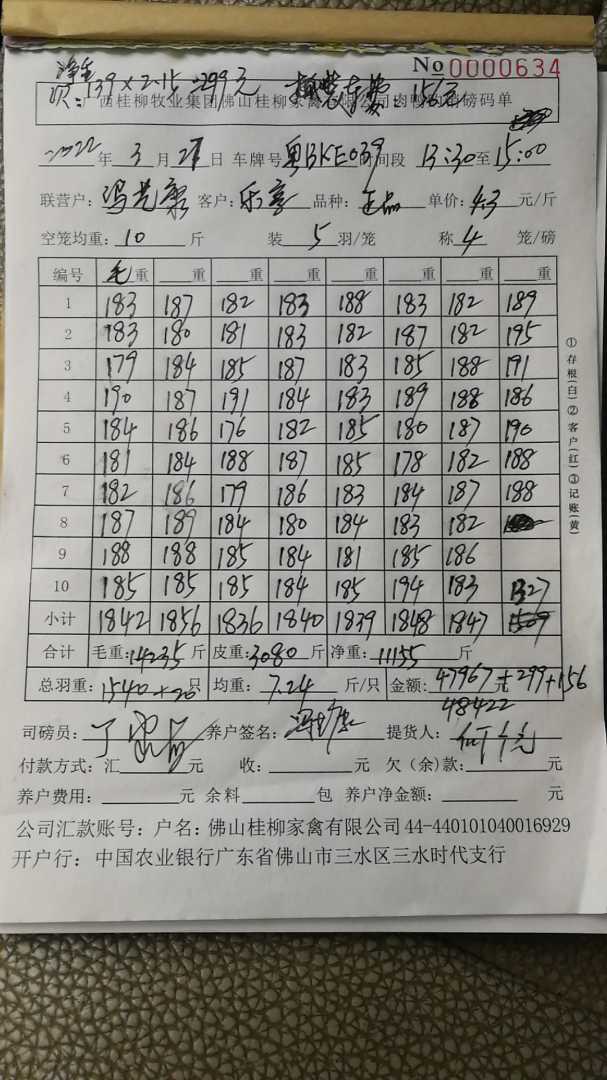 净重
次:139×2.15=299元 装车费:156元
No 0000634
广西桂柳牧业集团佛山桂柳家禽有限公司肉鸭销磅码单
2022年3月27日 车牌号粤BKE039时间段13:30至15:00
联营户: 客户:乐享 品种:正品 单价:4.3元/斤
空笼均重:10斤 装5羽/笼 称4笼/磅
编号 毛重 重 重 重 重 重 重 重
1 183 187 182 183 188 183 182 189
2 183 180 181 183 182 187 182 195
3 179 184 185 187 183 185 188 191
4 190 187 191 184 183 189 188 186
5 184 186 176 182 185 180 187 190
6 181 184 188 187 185 178 182 188
7 182 186 179 186 183 184 187 188
8 187 189 184 180 184 183 182
9 188 188 185 184 181 185 186
10 185 185 185 184 185 194 183 1327
小计 1842 1856 1836 1840 1839 1848 1847
合计 毛重:14235斤 皮重:3080斤 净重:11155斤
总羽重:1540+20只 均重:7.24斤/只 金额:47967元+299+156
48422
司磅员: 养户签名: 提货人:
付款方式:汇 元 收: 元 欠(余)款: 元
养户费用: 元 余料 包 养户净金额: 元
公司汇款账号:户名:佛山桂柳家禽有限公司 44-440101040016929
开户行:中国农业银行广东省佛山市三水区三水时代支行
①存根(白)②客户(红)③记账(黄)